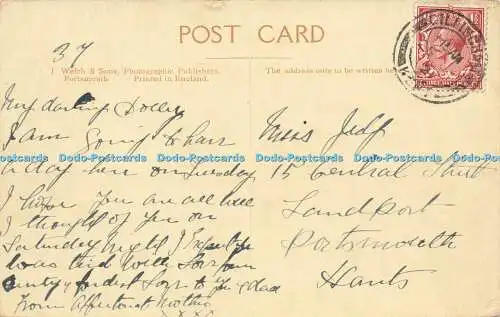 POST CARD
37
J. Welch & Sons, Photographic Publishers,
Portsmouth. Printed in England.
The address only to be written here
GILLINGHAM
My darling Dolly
I am going to have
a day here on Tuesday
I hope you are all well
I thought of you on
Saturday night I
was tired
fondest love to you & Dad
From Affectionate Mother
x x x
Miss
15 Central Street
Landport
Portsmouth
Hants
Dodo-Postcards Dodo-Postcards Dodo-Postcards Dodo-Postcards Dodo-Postcards